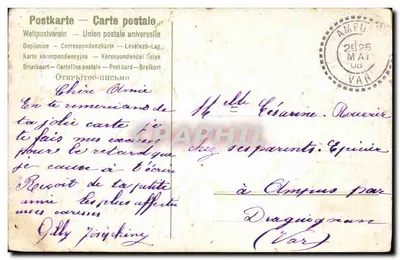 Postkarte - Carte postale
Weltpostverein - Union postale universelle
Dopisnice - Correspondenzkarte - Levelező-Lap
Karta korespondencyjna - Korespondenční lístek
Briefkaart - Cartolina postale - Postcard - Brefkort
Открытое письмо
AMPU
25 25
MAI
08
VAR
Chère Amie
En te remerciant de
ta jolie carte je
te fais mes excuses
pour le retard que
je cause à t'écrire
Reçoit de ta petite
amie les plus affectu
uses caresses
Gilly Joséphine
Melle Césarine
chez ses parents. Epicier
à Ampus par
Draguignan
(Var)